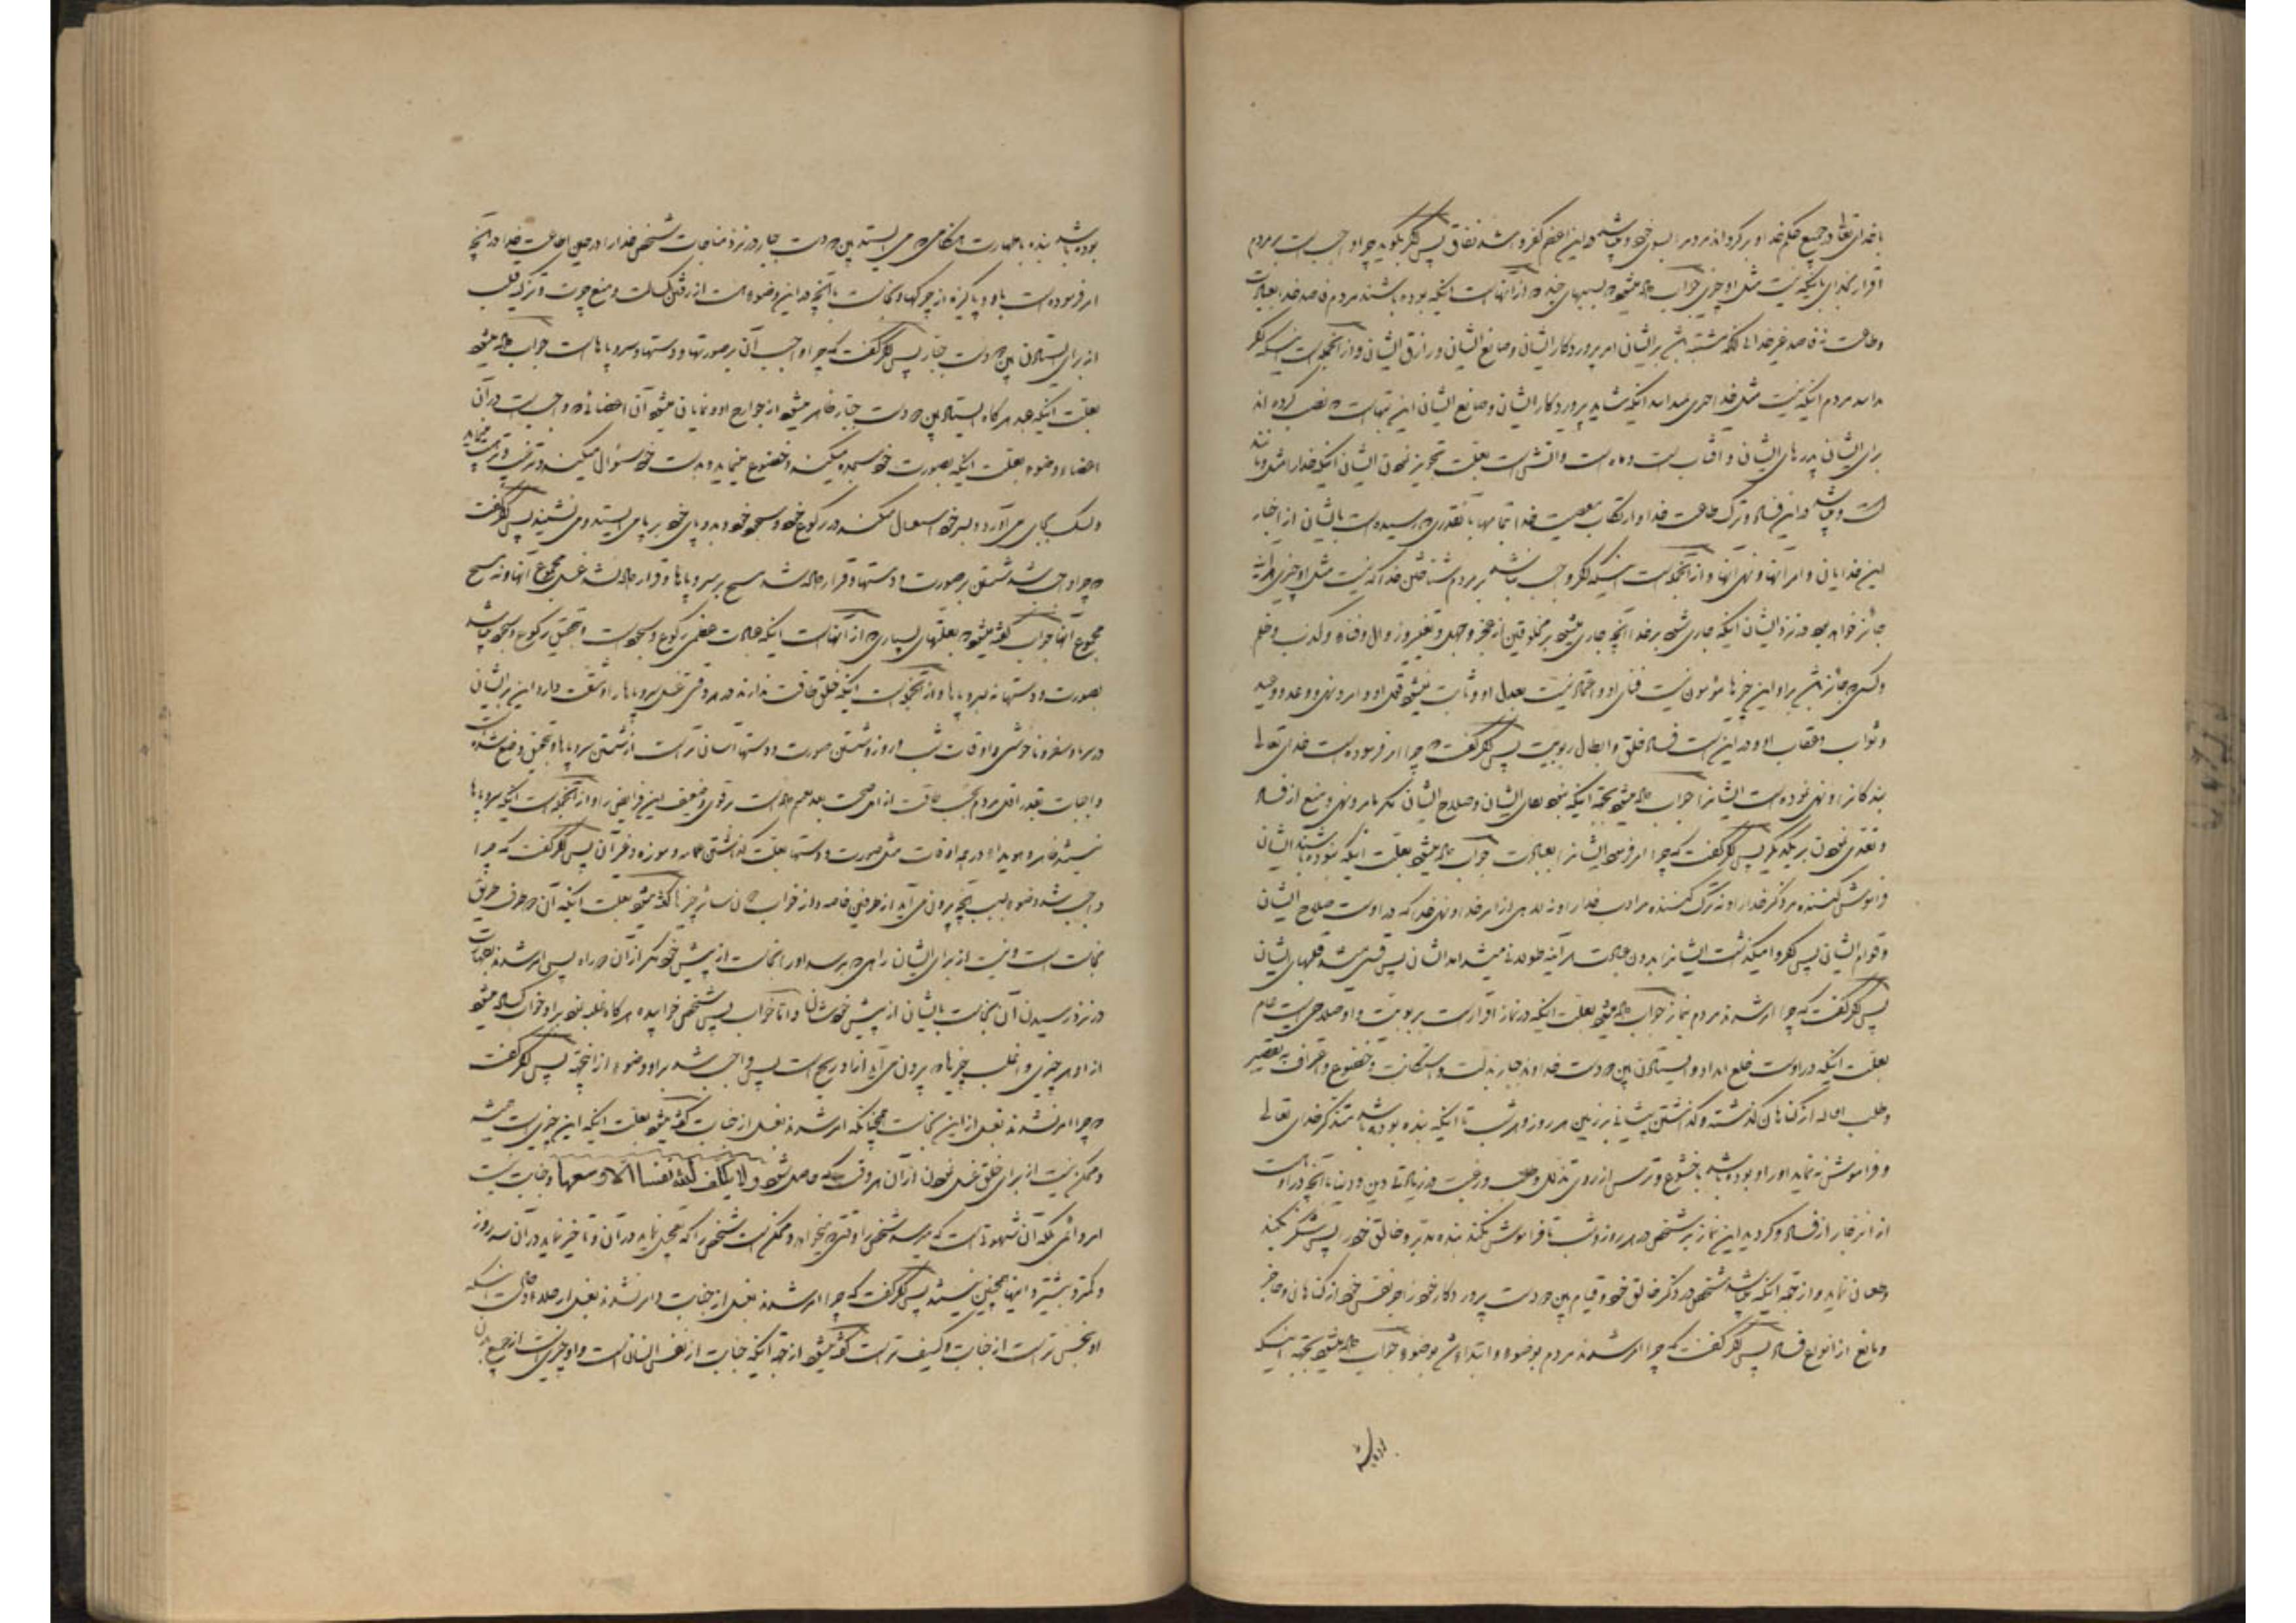 باخدای تعالی در جمیع حکم خدا و برگرداند مردم را بسوی خود و میباشد در این اعظم کفر و اشد نفاق پس اگر بگوید چرا واجب است بر مردم
اقرار بخدای باینکه نیست مثل او چیزی جواب گفته میشود بسببهای چند که از آنهاست اینکه بوده باشند مردم قاصد خدا بعبادت
وطاعت نه قاصد غیر خدا تا آنکه مشتبه نشود بر ایشان امر پروردگار ایشان و صانع ایشان و رازق ایشان و از آنجمله است اینکه اگر
ندانند مردم اینکه نیست مثل خدا احدی ندانند اینکه شاید پروردگار ایشان و صانع ایشان این بتهاست که نصب کرده اند
برای ایشان پدرهای ایشان و آفتاب است و ماه است و آتش است بعلت تجویز نمودن ایشان اینکه خدا را مثل و مانند
است و میباشد در این فساد و ترک طاعت خدا و ارتکاب معصیت خدا تمامها بآنقدری که رسیده است بایشان از اخبار
این خدایان و امر آنها و نهی آنها و از آنجمله است اینکه اگر واجب نباشد بر مردم شناختن خدا که نیست مثل او چیزی هرآینه
جائز خواهد بود در نزد ایشان اینکه جاری شود بر خدا آنچه جاری میشود بر مخلوقین از عجز و جهل و تغییر و زوال و فناء و کذب و ظلم
و کسی که جائز باشد بر او این چیزها مؤمون نیست فنای او و اعتماد نیست بعدل او و ثابت نمیشود قول او و امر و نهی و وعد و وعید
و ثواب و عقاب او و در این است فساد خلق و ابطال ربوبیت پس اگر گفت که چرا امر فرموده است خدای تعالی
بندگانرا و نهی نموده است ایشانرا جواب گفته میشود بجهة اینکه نمیبود بقای ایشان و صلاح ایشان مگر بامر و نهی و منع از فساد
و تعدی نمودن بر یکدیگر پس اگر گفت که چرا امر فرمود ایشانرا بعبادت جواب گفته میشود بعلت اینکه نبوده باشند ایشان
فراموش کننده مر ذکر خدا را و نه ترک کننده مر ادب خدا را و نه لاهی از امر خدا و نهی خدا که در اوست صلاح ایشان
و قوام ایشان پس اگر وامیگذاشت ایشانرا بدون عبادت هرآینه طولانی میشد امد ایشان پس قسی میشد قلبهای ایشان
پس اگر گفت که چرا امر شدند مردم بنماز جواب گفته میشود بعلت اینکه در نماز اقرار است بربوبیت و او صلاحی است عام
بعلت اینکه در اوست خلع انداد و ایستادن بین دست خداوند جبار بذلت و استکانت و خضوع و اعتراف به تقصیر
وطلب اقاله از گناهان گذشته و گذاشتن پیشانی بر زمین هر روز و هر شب تا اینکه بنده بوده باشد متذکر خدای تعالی
و فراموش ننماید او را و بوده باشد با خشوع و ترس از روی تذلل و طلب و رغبت در زیادتی دین و دنیا با آنچه در اوست
از انزجار از فساد و گردید این نماز بر شخص در هر روز و شب تا فراموش نکند بنده مدبر و خالق خود را پس سرکشی نکند
وطغیان نماید و از جهة اینکه میباشد شخص در ذکر خالق خود و قیام بین دست پروردگار خود زاجر نفس خود از گناهان و حاجز
و مانع از انواع فساد پس اگر گفت که چرا امر شدند مردم بوضوء و ابتداء شد بوضوء جواب گفته میشود بجهة اینکه
بوده باشد
بوده باشد بنده با طهارت هنگامی که می ایستد بین دست جبار در نزد مناجات شخص خدا را در حین اطاعت خدا در آنچه
امر فرموده است باو و پاکیزه از چرکها و نجاست با آنچه در این وضوء است از رفتن کسالت و منع چرت و تزکیه قلب
از برای ایستادن بین دست جبار پس اگر گفت که چرا واجب شد آن بر صورتها و دستها و سر و پاها است جواب گفته میشود
بعلت اینکه عبد هرگاه ایستاد بین دست جبار ظاهر میشود از جوارح او و نمایان میشود آن اعضائی که واجب است در آن
اعضاء وضوء بعلت اینکه بصورت خود سجده میکند و خضوع مینماید و بدست خود سؤال میکند و ترغیب و ترهیب مینماید
و نسک بجای می آورد و بسر خود استقبال میکند در رکوع خود و سجود خود و بدو پای خود بر پای ایستد و می نشیند پس اگر گفت
که چرا واجب شد شستن بر صورت و دستها و قرار داده شد مسح بر سر و پاها و قرار داده نشد غسل مجموع آنها و نه مسح
مجموع آنها جواب گفته میشود بعلتهای بسیاری که از آنهاست اینکه عبادت عظمی رکوع و سجود است و بتحقیق رکوع و سجود میباشد
بصورت و دستها نه بسر و پاها و از آنجمله است اینکه خلق طاقت ندارند در هر وقتی غسل سر و پاها را و مشقت دارد این بر ایشان
در سرما و سفر و ناخوشی و اوقات شب و روز و شستن صورت و دستها آسان تر است از شستن سر و پاها و بتحقیق وضع شده است
واجبات بقدر اقل مردم بحسب طاقت از اهل صحت بعد عمیم شده است بر قوی و ضعیف این فرایض را و از آنجمله است اینکه سر و پاها
نیستند ظاهر و هویدا در همه اوقات مثل صورت و دستها بعلت گذاشتن عمامه و موزه و غیر آن پس اگر گفت که چرا
واجب شد وضوء بسبب آنچه بیرون می آید از طرفین خاصه و از خواب دون سائر چیزها گفته میشود بعلت اینکه آن دو طرف طریق
نجاست است و نیست از برای ایشان راهی که برسد او را نجاست از پیش خود مگر از آن دو راه پس امر شدند بطهارت
در نزد رسیدن آن نجاست بایشان از پیش خودشان و اما خواب پس شخص خوابیده هرگاه غلبه نمود بر او خواب گشاده میشود
از او هر چیزی و اغلب چیزها که بیرون می آید از او ریح است پس واجب شد بر او وضوء از این جهة پس اگر گفت
که چرا امر نشدند بغسل از این نجاست همچنانکه امر شدند بغسل از جنابت گفته میشود بعلت اینکه این چیزی است همیشه
و ممکن نیست از برای خلق غسل نمودن از آن هر وقت که حاصل شود ولا یکلف الله نفسا الا وسعها و جنابت نیست
امر دائمی بلکه آن شهوتی است که میرسد شخص را وقتی که میخواهد و ممکن است شخص را که تعجیل نماید در آن و تاخیر نماید در آن سه روز
و کمتر و بیشتر و اینها همچنین نیستند پس اگر گفت که چرا امر شدند بغسل از جنابت و امر نشدند بغسل از خلا و حال آنکه
او نجس تر است از جنابت و کثیف تر است گفته میشود از جهة اینکه جنابت از نفس انسان است و او چیزی است از جمیع بدن